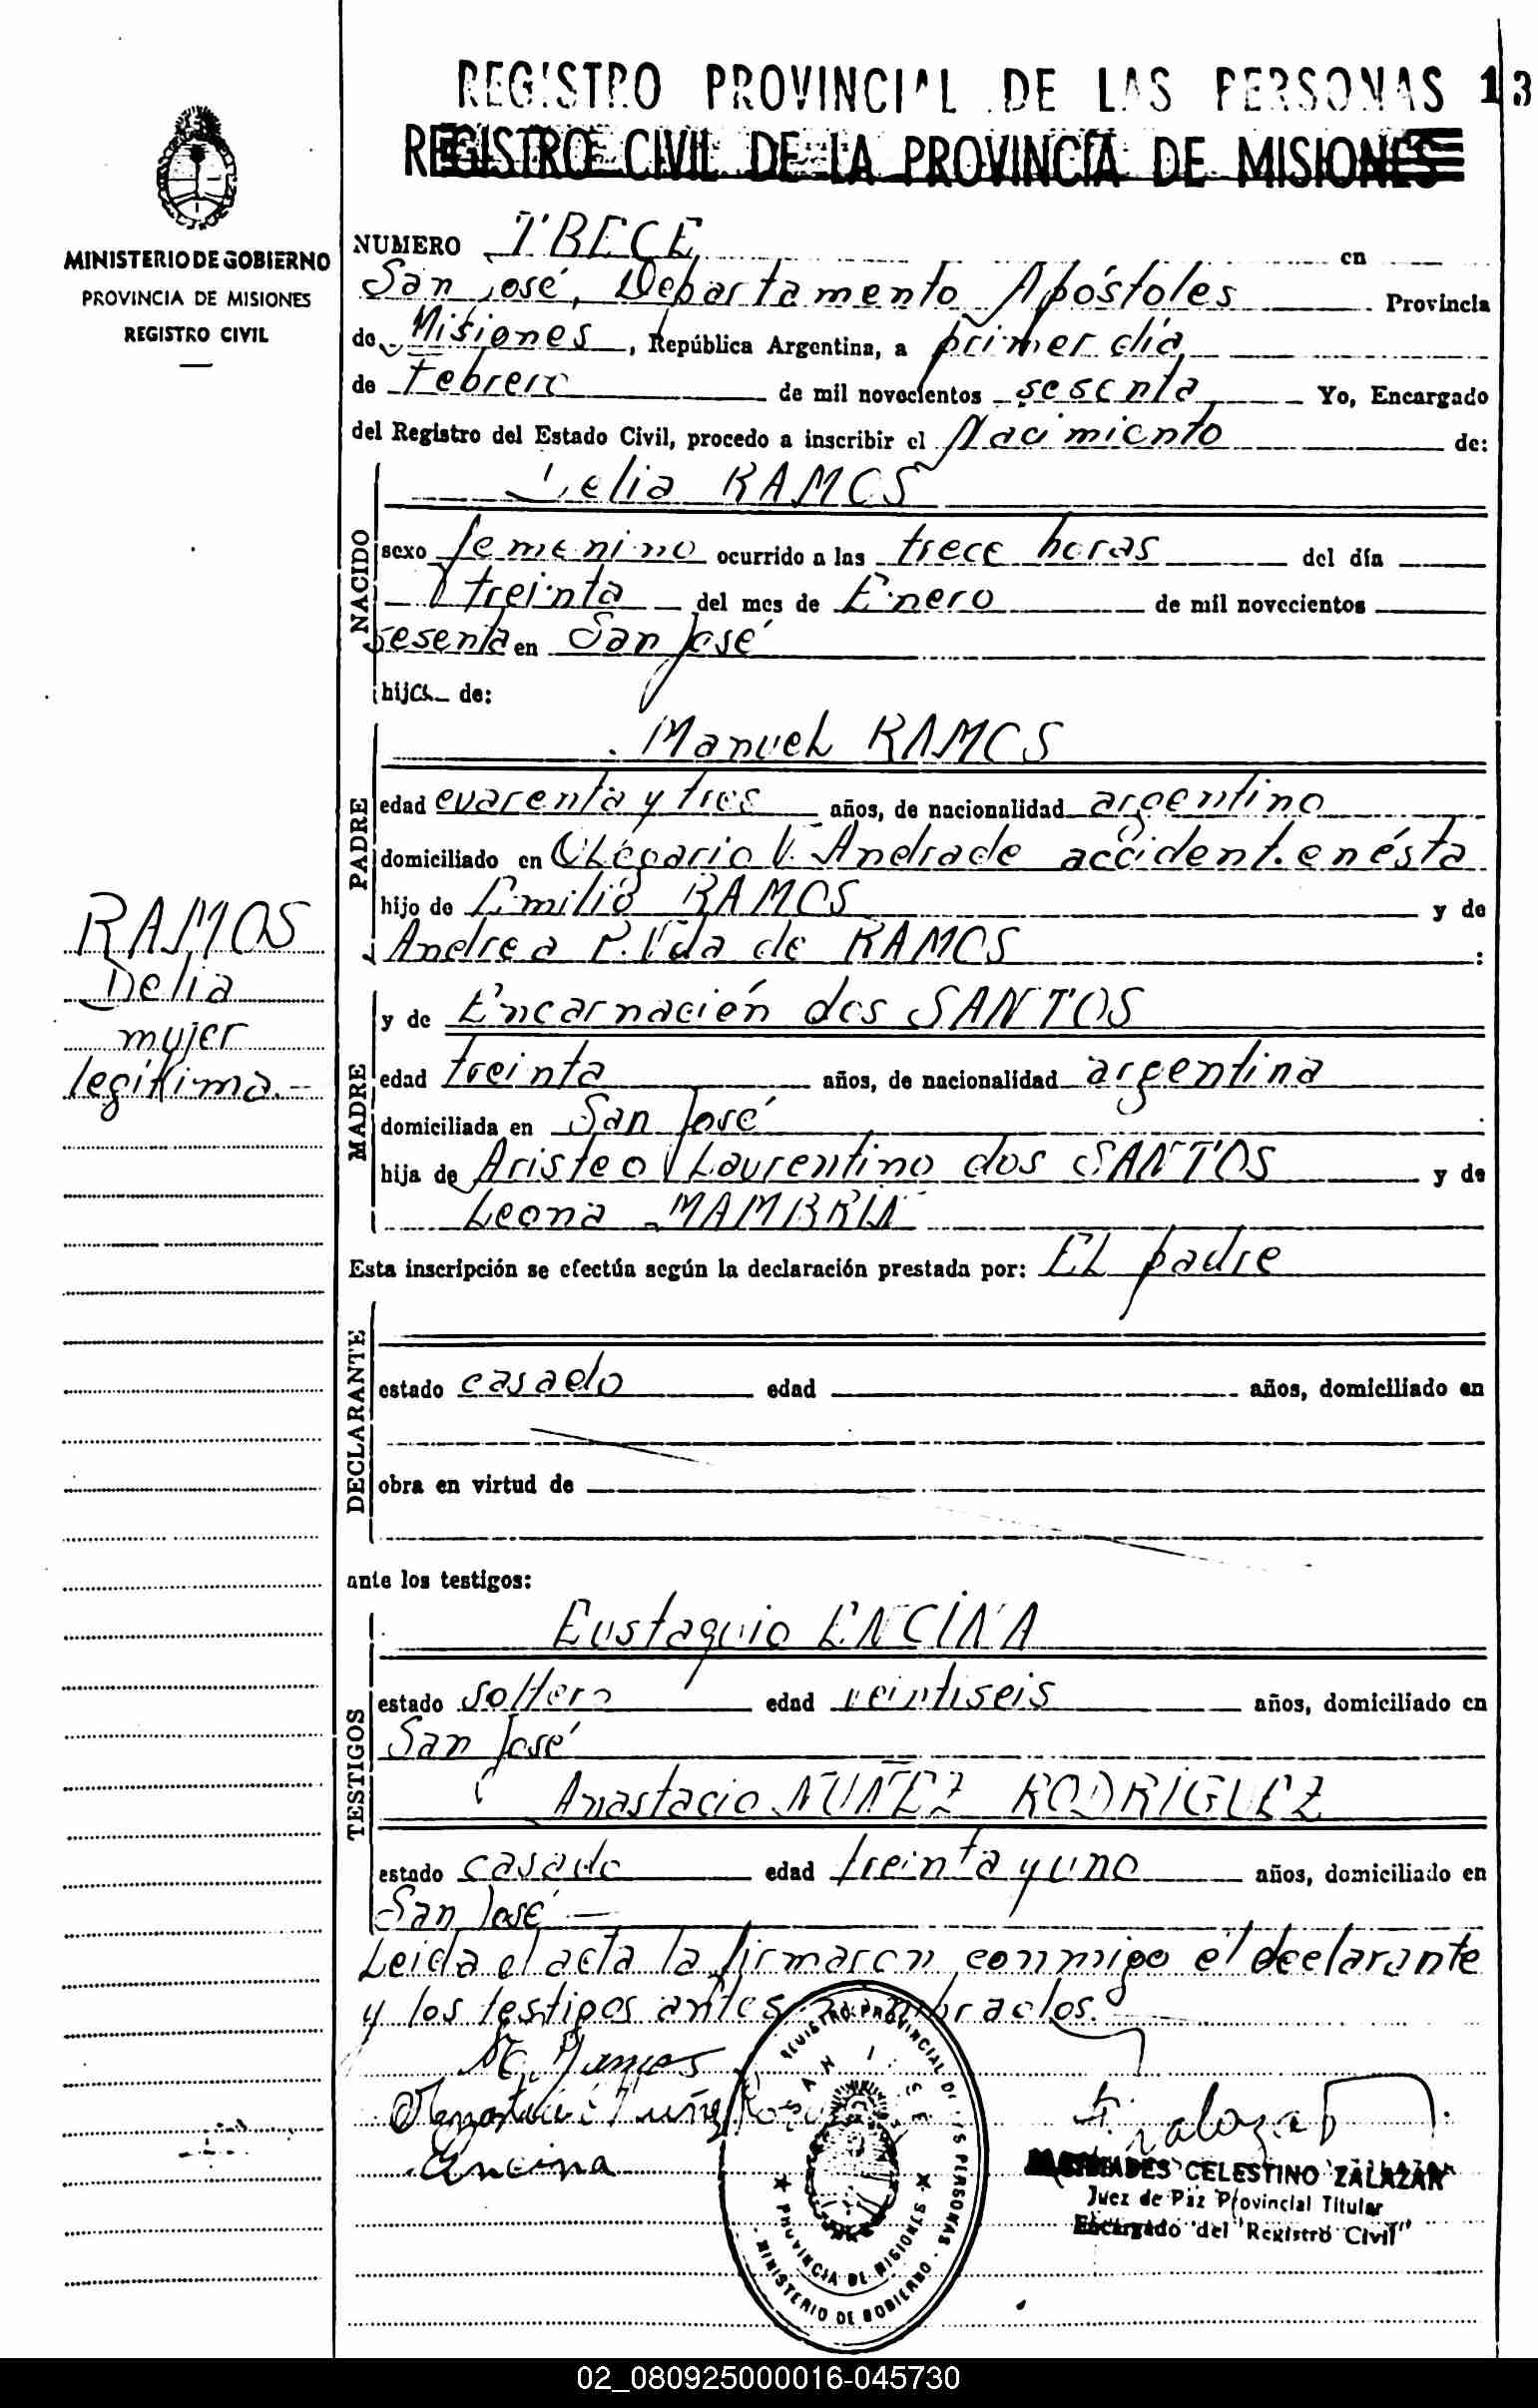 REGISTRO PROVINCIAL DE LAS PERSONAS 13
REGISTRO CIVIL DE LA PROVINCIA DE MISIONES
MINISTERIO DE GOBIERNO
PROVINCIA DE MISIONES
REGISTRO CIVIL
NUMERO TRECE en
San José, Departamento Apóstoles Provincia
de Misiones, República Argentina, a primer día
de Febrero de mil novecientos sesenta Yo, Encargado
del Registro del Estado Civil, procedo a inscribir el Nacimiento de:
NACIDO
Delia RAMOS
sexo femenino ocurrido a las trece horas del día
treinta del mes de Enero de mil novecientos
sesenta en San José
hija de:
PADRE
Manuel RAMOS
edad cuarenta y tres años, de nacionalidad argentino
domiciliado en Olegario V. Andrade accident. en ésta
hijo de Emilio RAMOS y de
Andrea P. Vda de RAMOS :
RAMOS
Delia
mujer
legítima.-
MADRE
y de Encarnación dos SANTOS
edad treinta años, de nacionalidad argentina
domiciliada en San José
hija de Aristeo Laurentino dos SANTOS y de
Leona MAMBRIN
Esta inscripción se efectúa según la declaración prestada por: El padre
DECLARANTE
estado casado edad años, domiciliado en
obra en virtud de
ante los testigos:
TESTIGOS
Eustaquio ENCINA
estado soltero edad veintiseis años, domiciliado en
San José
Anastacio NUÑEZ RODRIGUEZ
estado casado edad treinta y uno años, domiciliado en
San José
Leida el acta la firmaron conmigo el declarante
y los testigos antes nombrados.
M. Ramos
Encina
REGISTRO PROVINCIAL DE LAS PERSONAS
SAN JOSE
PROVINCIA DE MISIONES
MINISTERIO DE GOBIERNO
CELESTINO ZALAZAR
Juez de Paz Provincial Titular
Encargado del Registro Civil
02_080925000016-045730